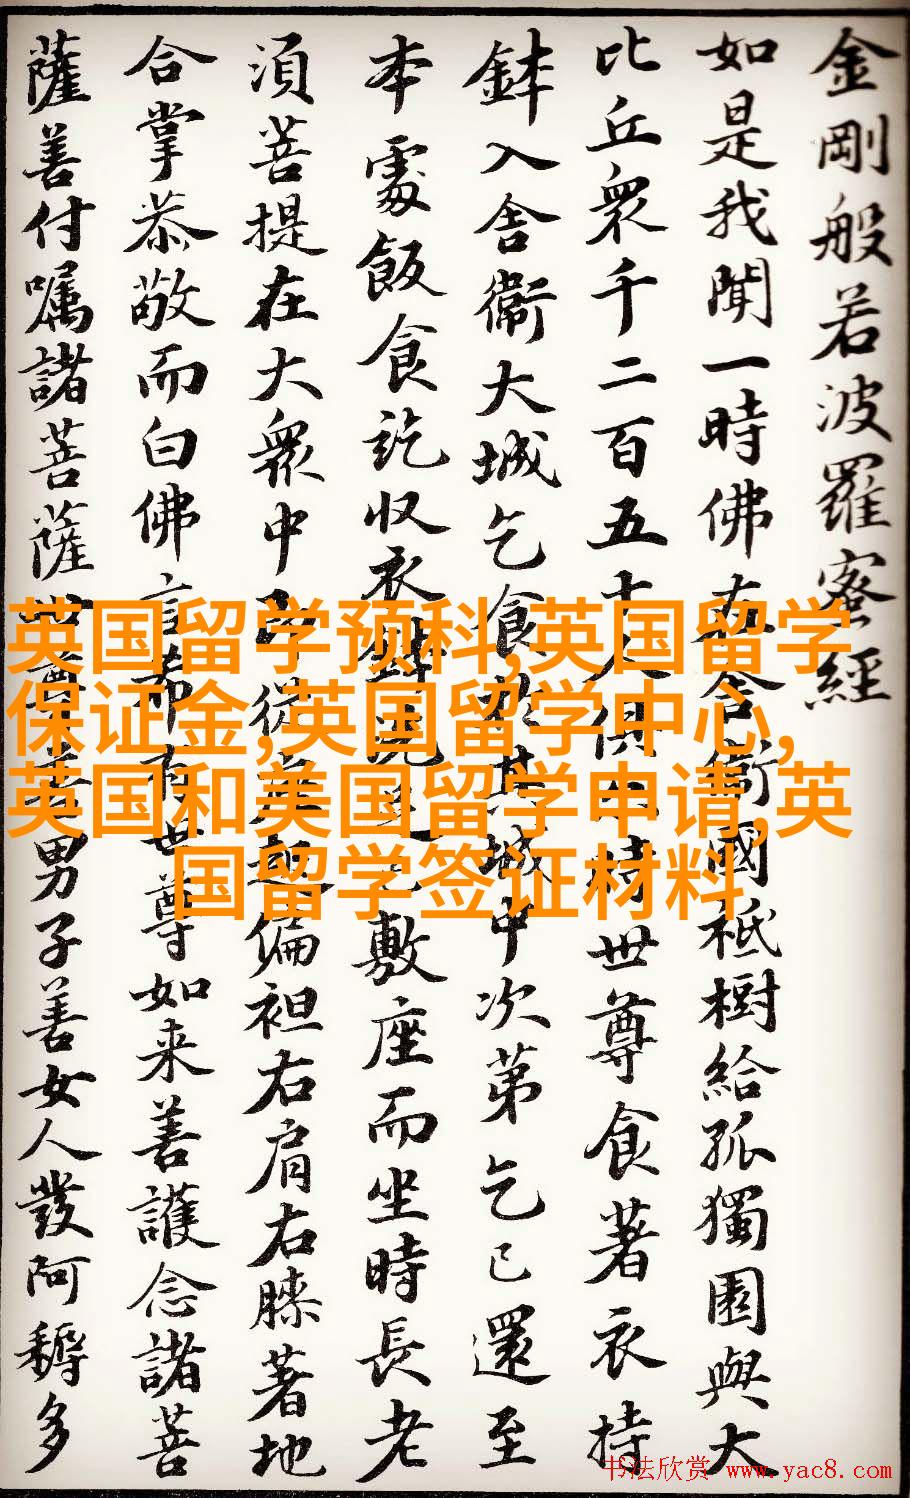 金剛般若波羅蜜經
如是我聞一時佛在舍衞國祇樹給孤獨園與大
比丘衆千二百五十人俱尒時世尊食著衣持
鉢入舍衞大城乞食於其城中次第乞已還至
本處飯食訖收衣鉢洗足已敷座而坐時長老
須菩提在大衆中即從座起偏袒右肩右膝著地
合掌恭敬而白佛言希有世尊如来善護念諸菩
薩善付嘱諸菩薩世尊善男子善女人發阿耨多
英国留学预科,英国留学
保证金,英国留学中心,
英国和美国留学申请,英
国留学签证材料
书法欣赏 www.yac8.com